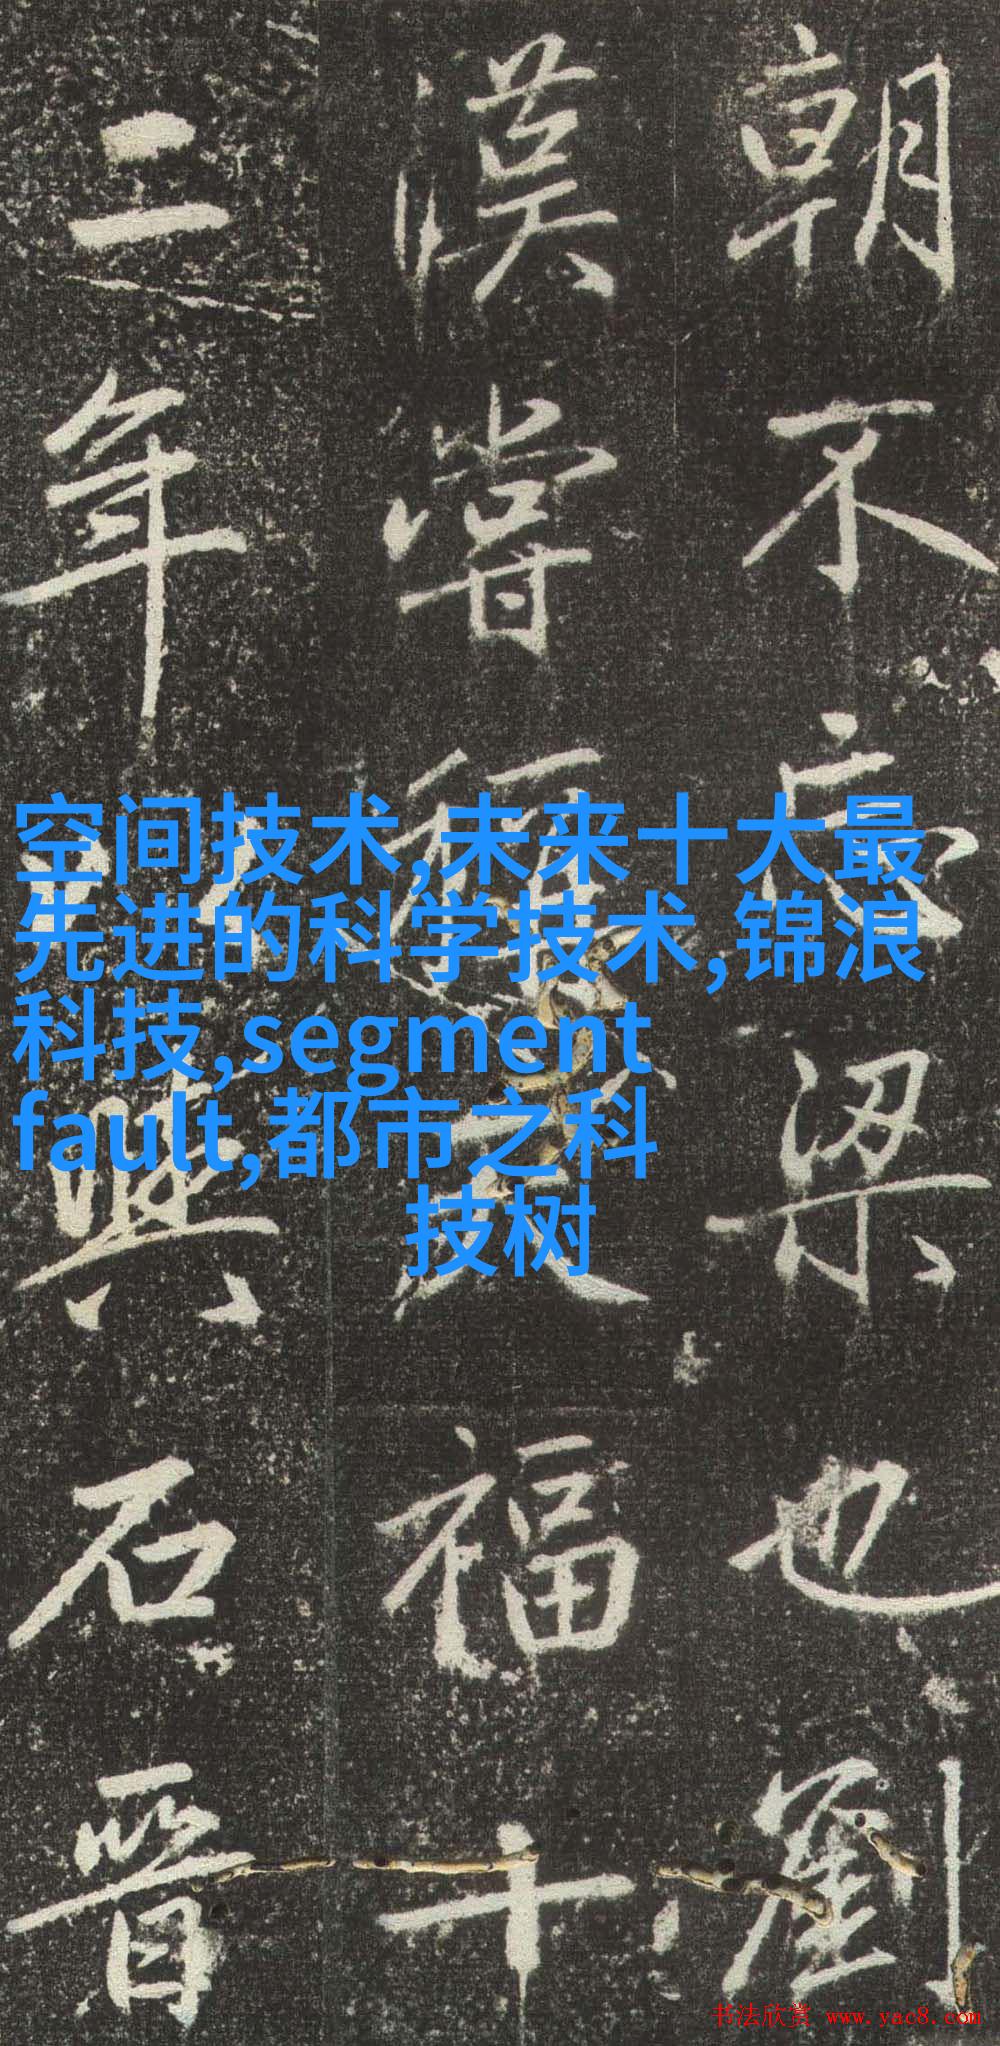 朝不忘梁也劉
漢嘗福十
二年興石晉
空间技术,未来十大最
先进的科学技术,锦浪
科技,segment
fault,都市之科
技树
书法欣赏 www.yac8.com